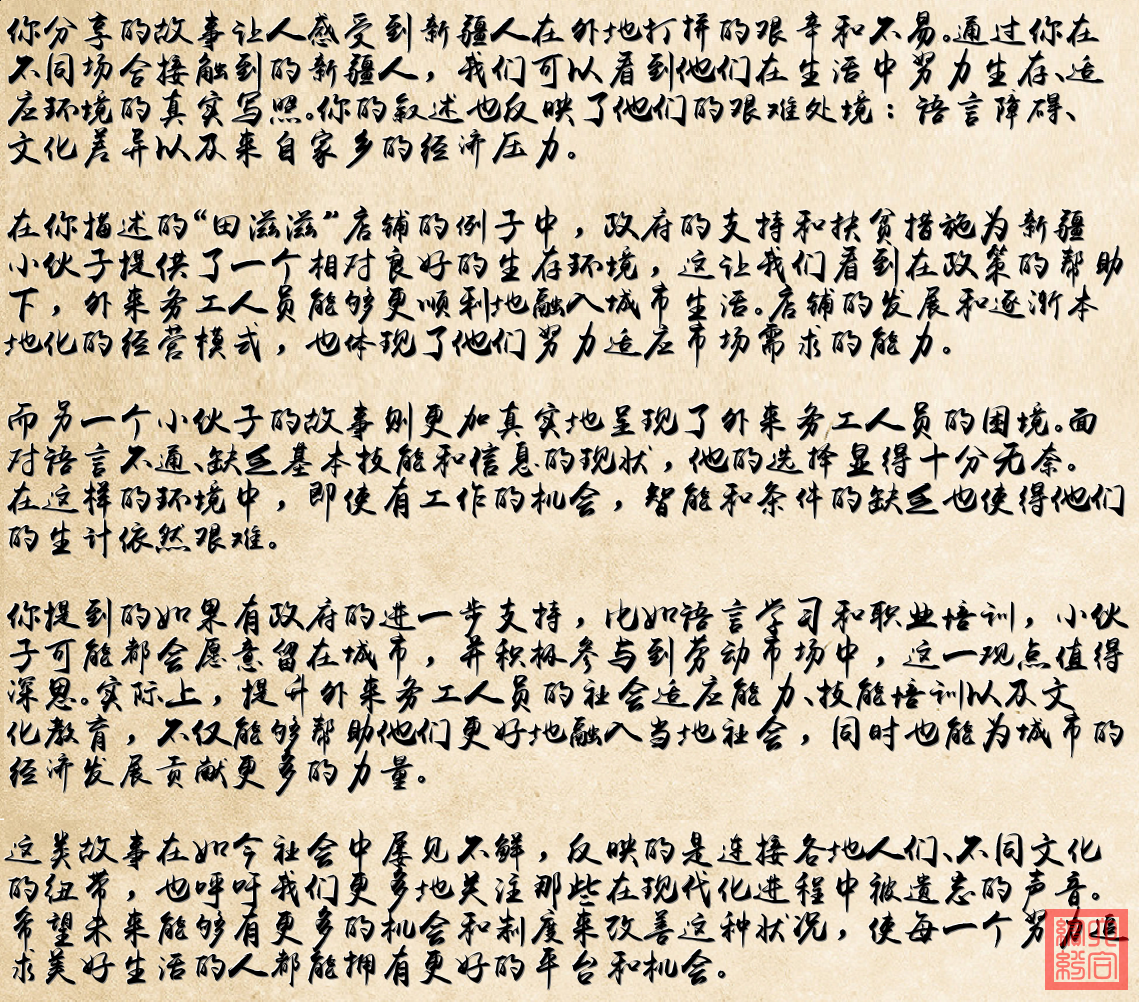 你分享的故事让人感受到新疆人在外地打拼的艰辛和不易。通过你在
不同场合接触到的新疆人，我们可以看到他们在生活中努力生存、适
应环境的真实写照。你的叙述也反映了他们的艰难处境：语言障碍、
文化差异以及来自家乡的经济压力。
在你描述的“田滋滋”店铺的例子中，政府的支持和扶贫措施为新疆
小伙子提供了一个相对良好的生存环境，这让我们看到在政策的帮助
下，外来务工人员能够更顺利地融入城市生活。店铺的发展和逐渐本
地化的经营模式，也体现了他们努力适应市场需求的能力。
而另一个小伙子的故事则更加真实地呈现了外来务工人员的困境。面
对语言不通、缺乏基本技能和信息的现状，他的选择显得十分无奈。
在这样的环境中，即使有工作的机会，智能和条件的缺乏也使得他们
的生计依然艰难。
你提到的如果有政府的进一步支持，比如语言学习和职业培训，小伙
子可能都会愿意留在城市，并积极参与到劳动市场中，这一观点值得
深思。实际上，提升外来务工人员的社会适应能力、技能培训以及文
化教育，不仅能够帮助他们更好地融入当地社会，同时也能为城市的
经济发展贡献更多的力量。
这类故事在如今社会中屡见不鲜，反映的是连接各地人们、不同文化
的纽带，也呼吁我们更多地关注那些在现代化进程中被遗忘的声音。
希望未来能够有更多的机会和制度来改善这种状况，使每一个努力追
求美好生活的人都能拥有更好的平台和机会。